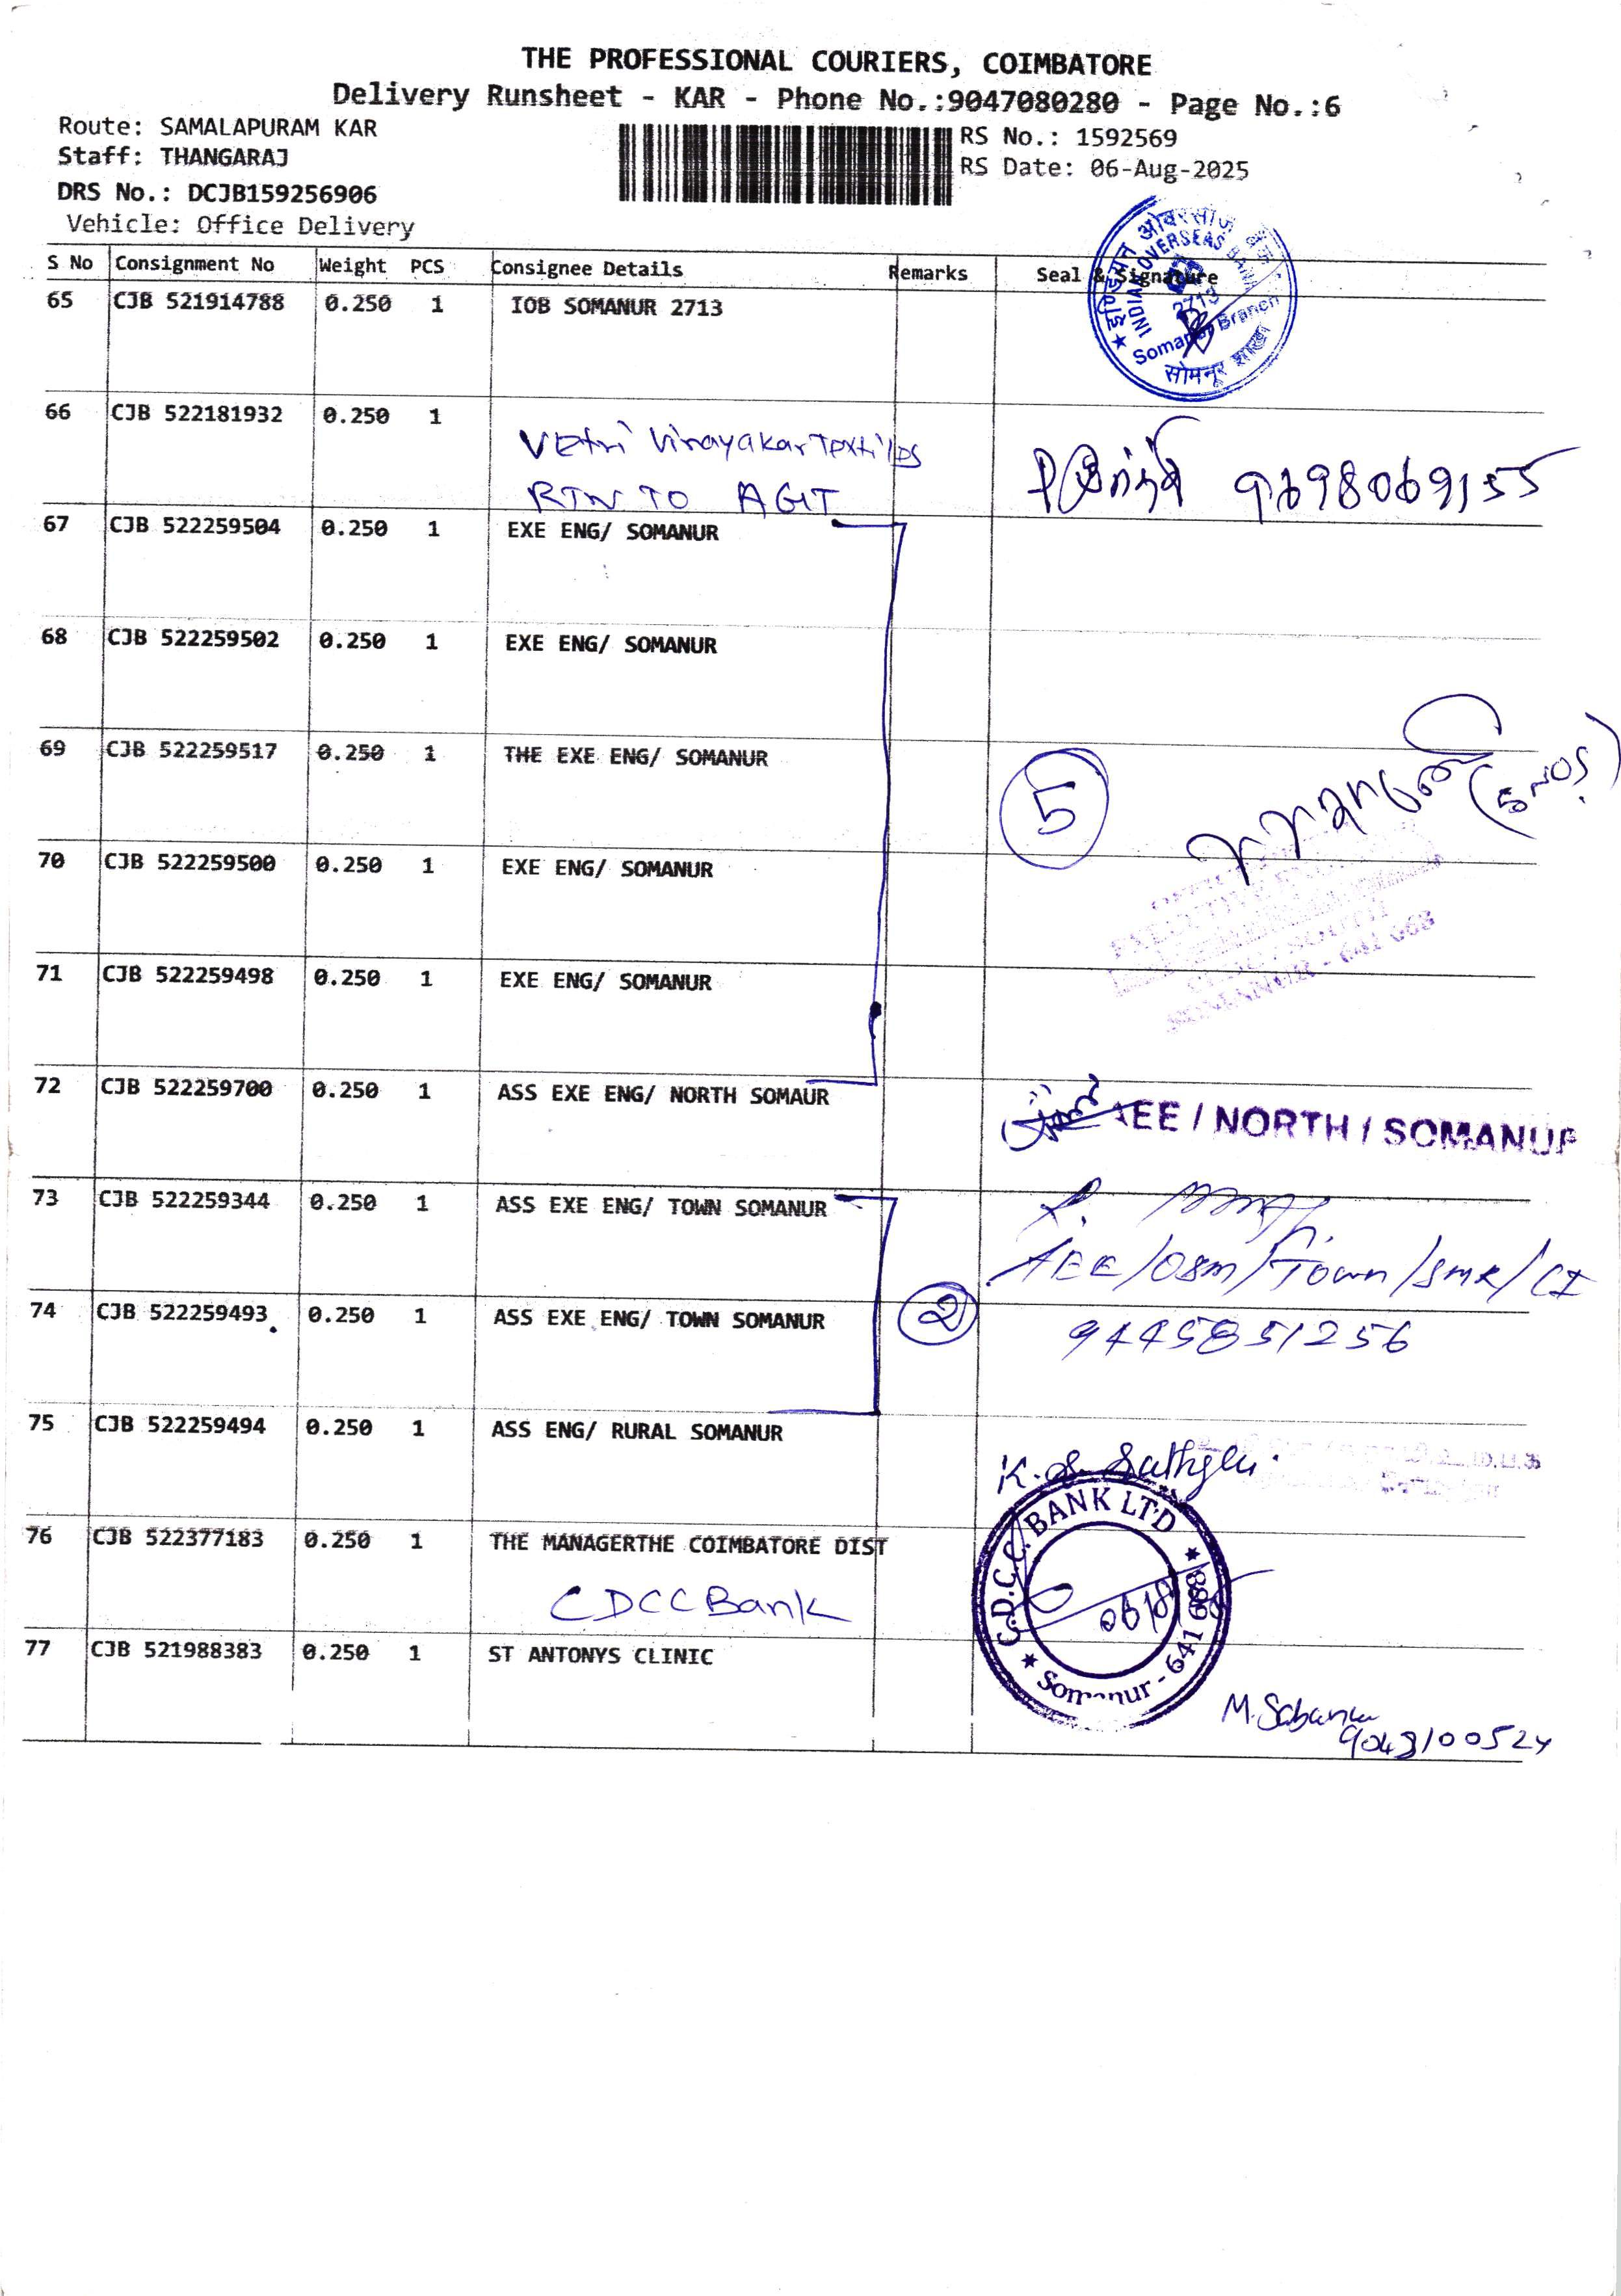 THE PROFESSIONAL COURIERS, COIMBATORE
Delivery Runsheet - KAR - Phone No.:9047080280 - Page No.:6
Route: SAMALAPURAM KAR
RS No.: 1592569
Staff: THANGARAJ
RS Date: 06-Aug-2025
DRS No.: DCJB159256906
Vehicle: Office Delivery
S No Consignment No Weight PCS Consignee Details Remarks Seal & Signature
65 CJB 521914788 0.250 1 IOB SOMANUR 2713
इण्डियन ओवरसीज बैंक
INDIAN OVERSEAS BANK
2713
Somanur Branch
सोमनूर शाखा
66 CJB 522181932 0.250 1
Vetri Vinayakar Textiles
RTN TO AGIT
9698069155
67 CJB 522259504 0.250 1 EXE ENG/ SOMANUR
68 CJB 522259502 0.250 1 EXE ENG/ SOMANUR
69 CJB 522259517 0.250 1 THE EXE ENG/ SOMANUR
5
(5 nos)
70 CJB 522259500 0.250 1 EXE ENG/ SOMANUR
71 CJB 522259498 0.250 1 EXE ENG/ SOMANUR
72 CJB 522259700 0.250 1 ASS EXE ENG/ NORTH SOMAUR
AEE / NORTH / SOMANUR
73 CJB 522259344 0.250 1 ASS EXE ENG/ TOWN SOMANUR
AEE/O&M/Town/SMR/CI
74 CJB 522259493 0.250 1 ASS EXE ENG/ TOWN SOMANUR
2
9445851256
75 CJB 522259494 0.250 1 ASS ENG/ RURAL SOMANUR
76 CJB 522377183 0.250 1 THE MANAGERTHE COIMBATORE DIST
CDCC Bank
C.D.C.C. BANK LTD
Somanur - 641 668
77 CJB 521988383 0.250 1 ST ANTONYS CLINIC
9043100524